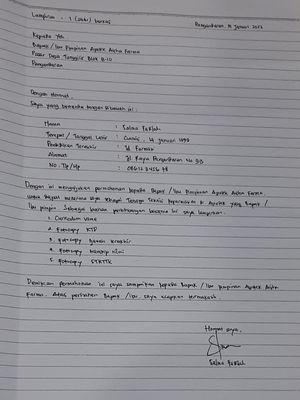 Lampiran : 1 (satu) berkas
Pangandaran, 18 Januari 2022
Kepada Yth
Bapak / Ibu Pimpinan Apotek Aisha Farma
Pasar Desa Blok B-10
Pangandaran
Dengan Hormat,
Saya yang bertanda tangan dibawah ini :
Nama : Salma
Tempat / Tanggal Lahir : Ciamis, 14 Januari 1999
Pendidikan Terakhir : D3 Farmasi
Alamat : Jl. Raya Pangandaran No 313
NO. Tlp/Hp :
Dengan ini mengajukan permohonan kepada Bapak / Ibu Pimpinan Apotek Aisha Farma,
untuk dapat Tenaga Teknis Kefarmasian di Apotek yang Bapak /
Ibu pimpin. Sebagai bahan pertimbangan bersama ini saya lampirkan:
1. Curriculum Vitae
2. Fotocopy KTP
3. Fotocopy Ijazah terakhir
4. Fotocopy transkip nilai
5. Fotocopy STRTTK
Demikian permohonan ini saya sampaikan kepada Bapak / Ibu Pimpinan Apotek Aisha
Farma. Atas perhatian Bapak / Ibu, saya ucapkan terimakasih.
Hormat saya,
Salma